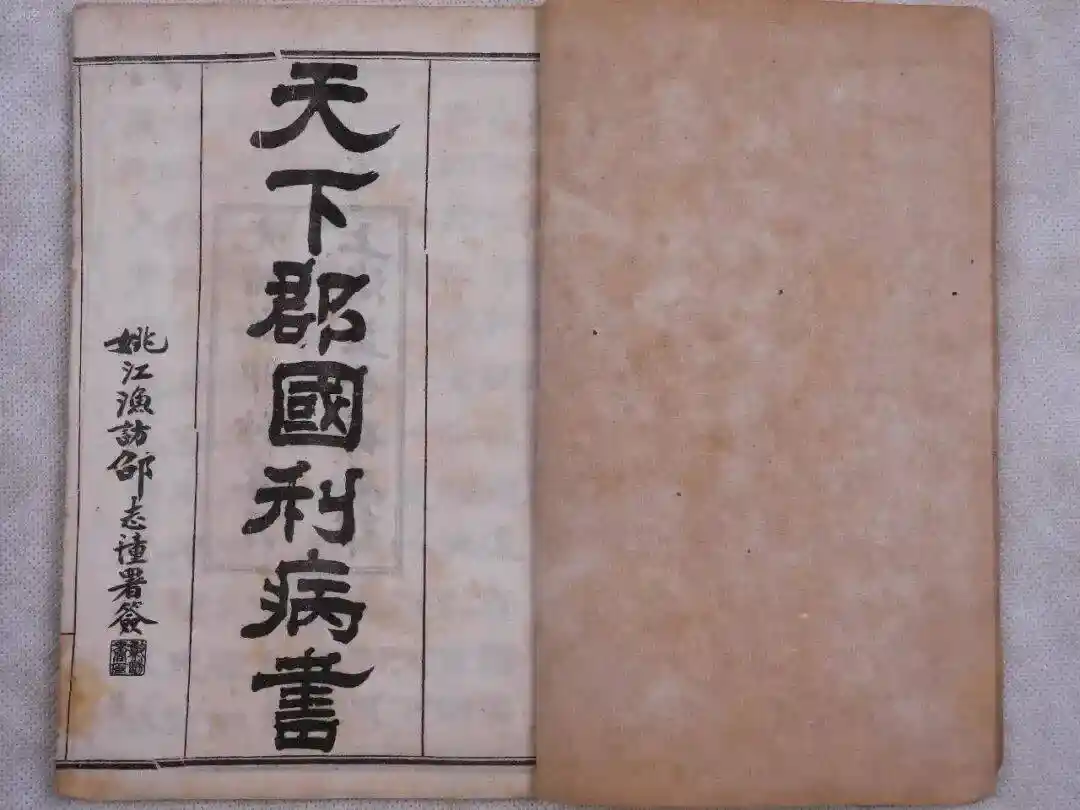 天下郡國利病書
姚江漁訪邵志瓊署簽